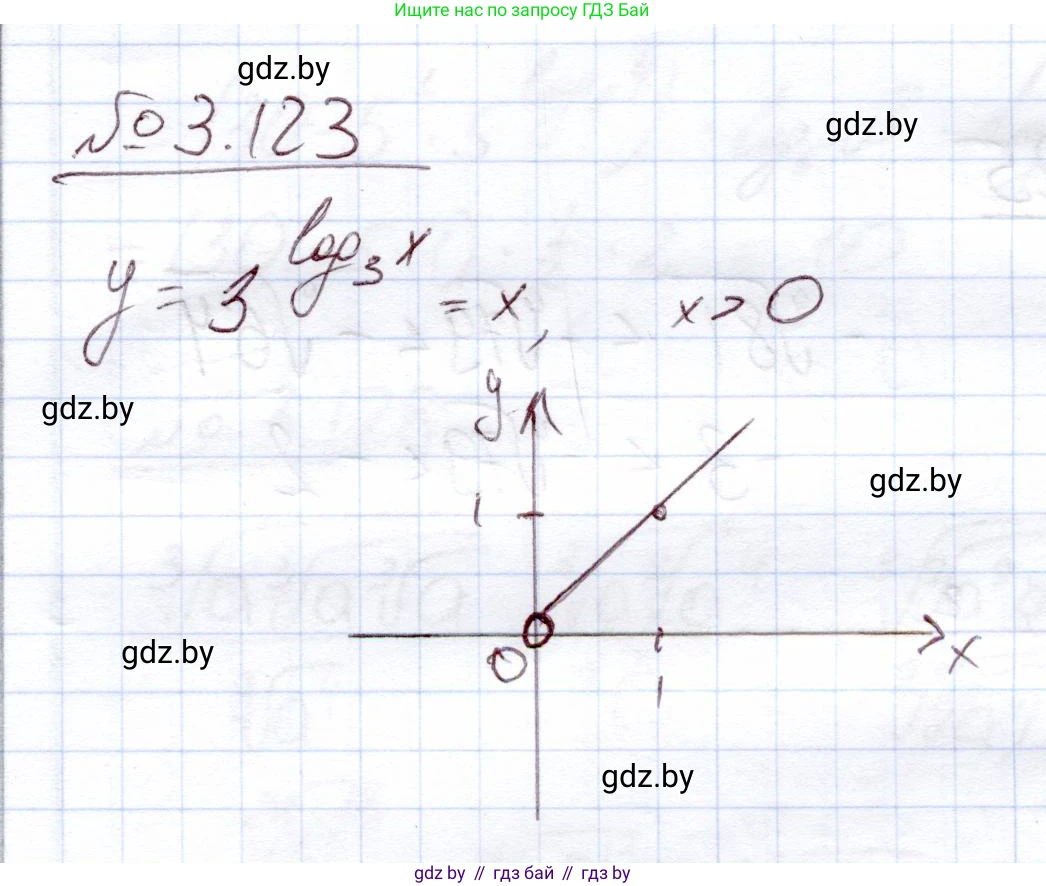 Ищите нас по запросу ГДЗ Бай
gdz.by
№ 3.123
gdz.by
y = 3^{log_3 x} = x, x > 0
gdz.by
y
gdz.by
1
gdz.by
0
x
1
gdz.by
gdz.by // гдз бай // гдз by